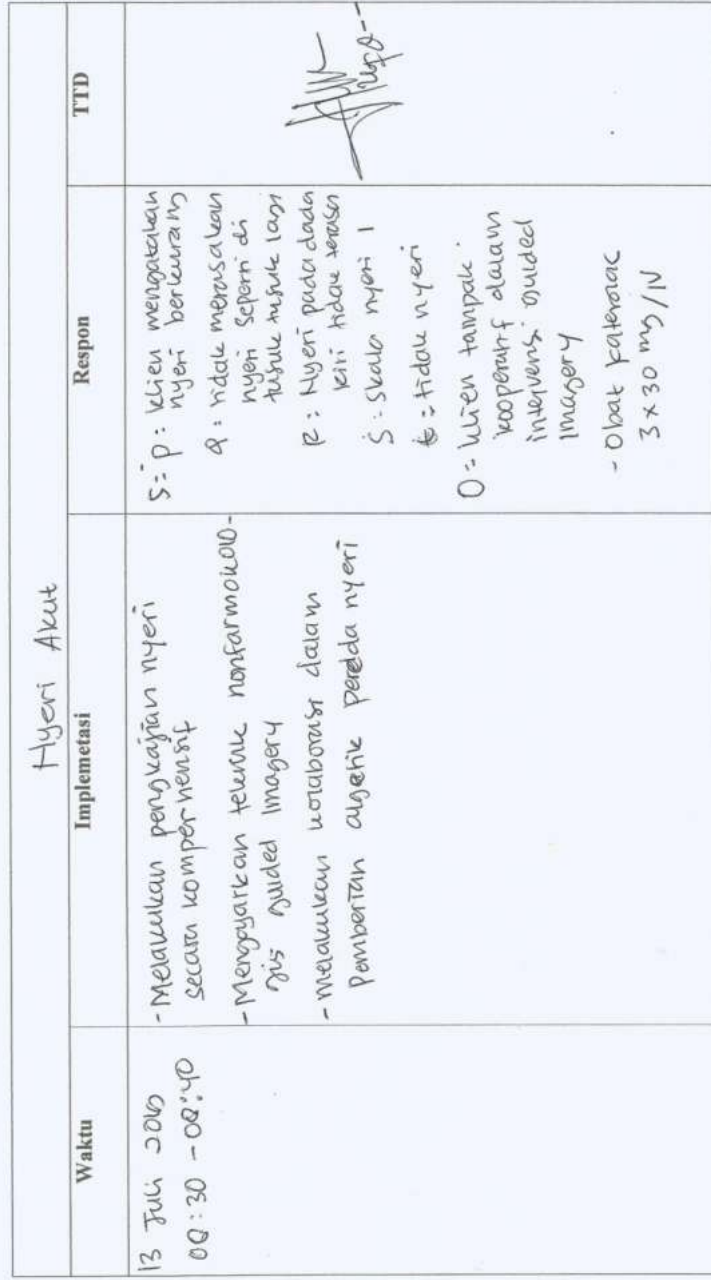 Nyeri Akut
Waktu
Implemetasi
Respon
TTD
13 Juli
08:30 - 08:40
- Melakukan pengkajian nyeri
secara komperhensif
- Mengajarkan teknik nonfarmokolo-
gis guided Imagery
- melakukan kolaborasi dalam
pemberian algetik peredda nyeri
S: P: klien mengatakan
nyeri berkurang
Q: tidak merasakan
nyeri seperti di
tusuk tusuk lagi
R: Nyeri pada dada
kiri tidak terasa
S: skala nyeri 1
t: tidak nyeri
O: klien tampak
kooperatif dalam
intervensi guided
Imagery
- Obat katerolac
3 x 30 mg/IV